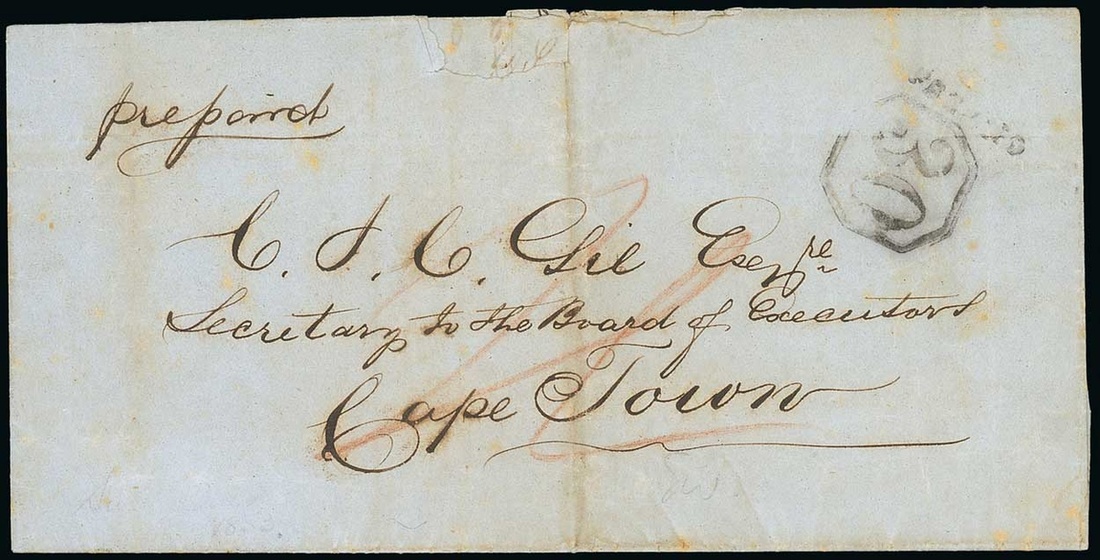 prepaid
30
C. J. C. Gie Esqre
Secretary to the Board of Executors
Cape Town